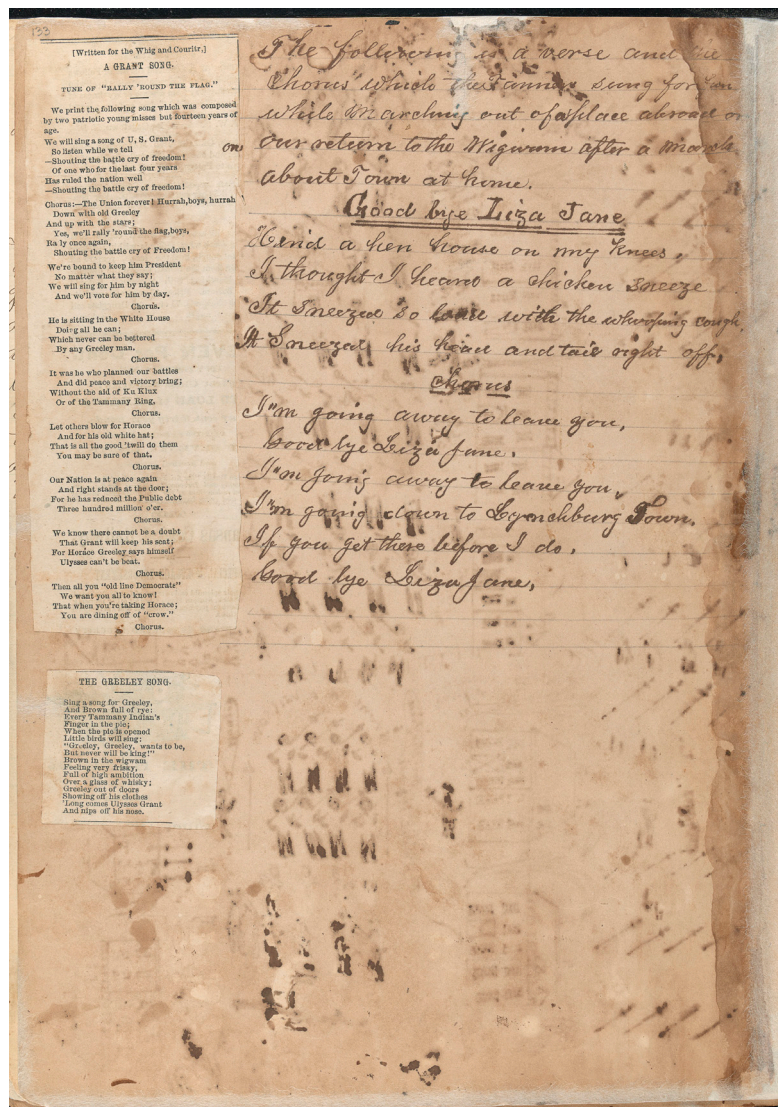 133
[Written for the Whig and Courier.]
A GRANT SONG.
TUNE OF "RALLY 'ROUND THE FLAG."
We print the following song which was composed
by two patriotic young misses but fourteen years of
age.
We will sing a song of U. S. Grant,
So listen while we tell
—Shouting the battle cry of freedom!
Of one who for the last four years
Has ruled the nation well
—Shouting the battle cry of freedom!
Chorus:—The Union forever! Hurrah, boys, hurrah
Down with old Greeley
And up with the stars;
Yes, we'll rally 'round the flag, boys,
Ra ly once again,
Shouting the battle cry of Freedom!
We're bound to keep him President
No matter what they say;
We will sing for him by night
And we'll vote for him by day.
Chorus.
He is sitting in the White House
Doing all he can;
Which never can be bettered
By any Greeley man.
Chorus.
It was he who planned our battles
And did peace and victory bring;
Without the aid of Ku Klux
Or of the Tammany Ring,
Chorus.
Let others blow for Horace
And for his old white hat;
That is all the good 'twill do them
You may be sure of that.
Chorus.
Our Nation is at peace again
And right stands at the door;
For he has reduced the Public debt
Three hundred million o'er.
Chorus.
We know there cannot be a doubt
That Grant will keep his seat;
For Horace Greeley says himself
Ulysses can't be beat.
Chorus.
Then all you "old line Democrats"
We want you all to know!
That when you're taking Horace;
You are dining off of "crow."
Chorus.
THE GREELEY SONG.
Sing a song for Greeley,
And Brown full of rye:
Every Tammany Indian's
Finger in the pie;
When the pie is opened
Little birds will sing:
"Greeley, Greeley, wants to be,
But never will be king!"
Brown in the wigwam
Feeling very frisky,
Full of high ambition
Over a glass of whisky;
Greeley out of doors
Showing off his clothes
'Long comes Ulysses Grant
And nips off his nose.
The following is a verse and the
Chorus which the Tanners sung for fun
while Marching out of a place abroad or
on our return to the Wigwam after a march
about Town at home.
Good bye Liza Jane
Behind a hen house on my knees,
I thought I heard a chicken sneeze
It sneezed so loud with the whooping cough
It Sneezed his head and tail right off,
Chorus
I'm going away to leave you,
Good bye Liza Jane.
I'm going away to leave you,
I'm going down to Lynchburg Town.
If you get there before I do.
Good bye Liza Jane,